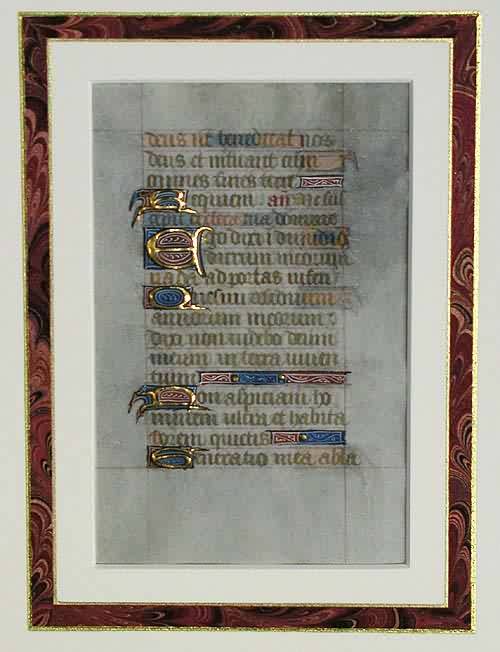 deus benedicat nos
deus et metuant eum
omnes fines terre
Requiem an
Ego dixi in dimidio
dierum meorum
ad portas inferi
Quesivi residuum
annorum meorum
dixi non videbo deum
meum in terra viven
tium
Non aspiciam ho
minem ultra et habita
torem quietis
Generatio mea abla